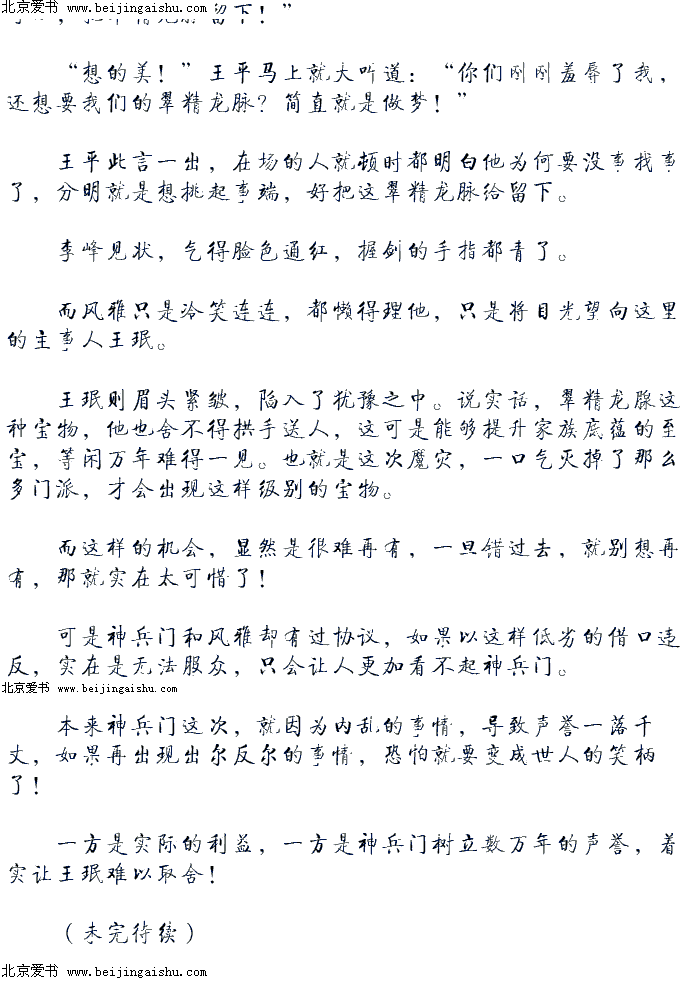 北京爱书 www.beijingaishu.com
留下！”
“想的美！”王平马上就大听道：“你们刚刚羞辱了我，
还想要我们的翠精龙脉？简直就是做梦！”
王平此言一出，在场的人就顿时都明白他为何要没事找事
了，分明就是想挑起事端，好把这翠精龙脉给留下。
李峰见状，气得脸色通红，握剑的手指都青了。
而风雅只是冷笑连连，都懒得理他，只是将目光望向这里
的主事人王珉。
王珉则眉头紧皱，陷入了犹豫之中。说实话，翠精龙脉这
种宝物，他也舍不得拱手送人，这可是能够提升家族底蕴的至
宝，等闲万年难得一见。也就是这次魔灾，一口气灭掉了那么
多门派，才会出现这样级别的宝物。
而这样的机会，显然是很难再有，一旦错过去，就别想再
有，那就实在太可惜了！
可是神兵门和风雅却有过协议，如果以这样低劣的借口违
反，实在是无法服众，只会让人更加看不起神兵门。
北京爱书 www.beijingaishu.com
本来神兵门这次，就因为内乱的事情，导致声誉一落千
丈，如果再出现出尔反尔的事情，恐怕就要变成世人的笑柄
了！
一方是实际的利益，一方是神兵门树立数万年的声誉，着
实让王珉难以取舍！
（未完待续）
北京爱书 www.beijingaishu.com